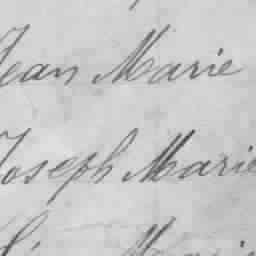 Jean Marie
Joseph Marie
Marie